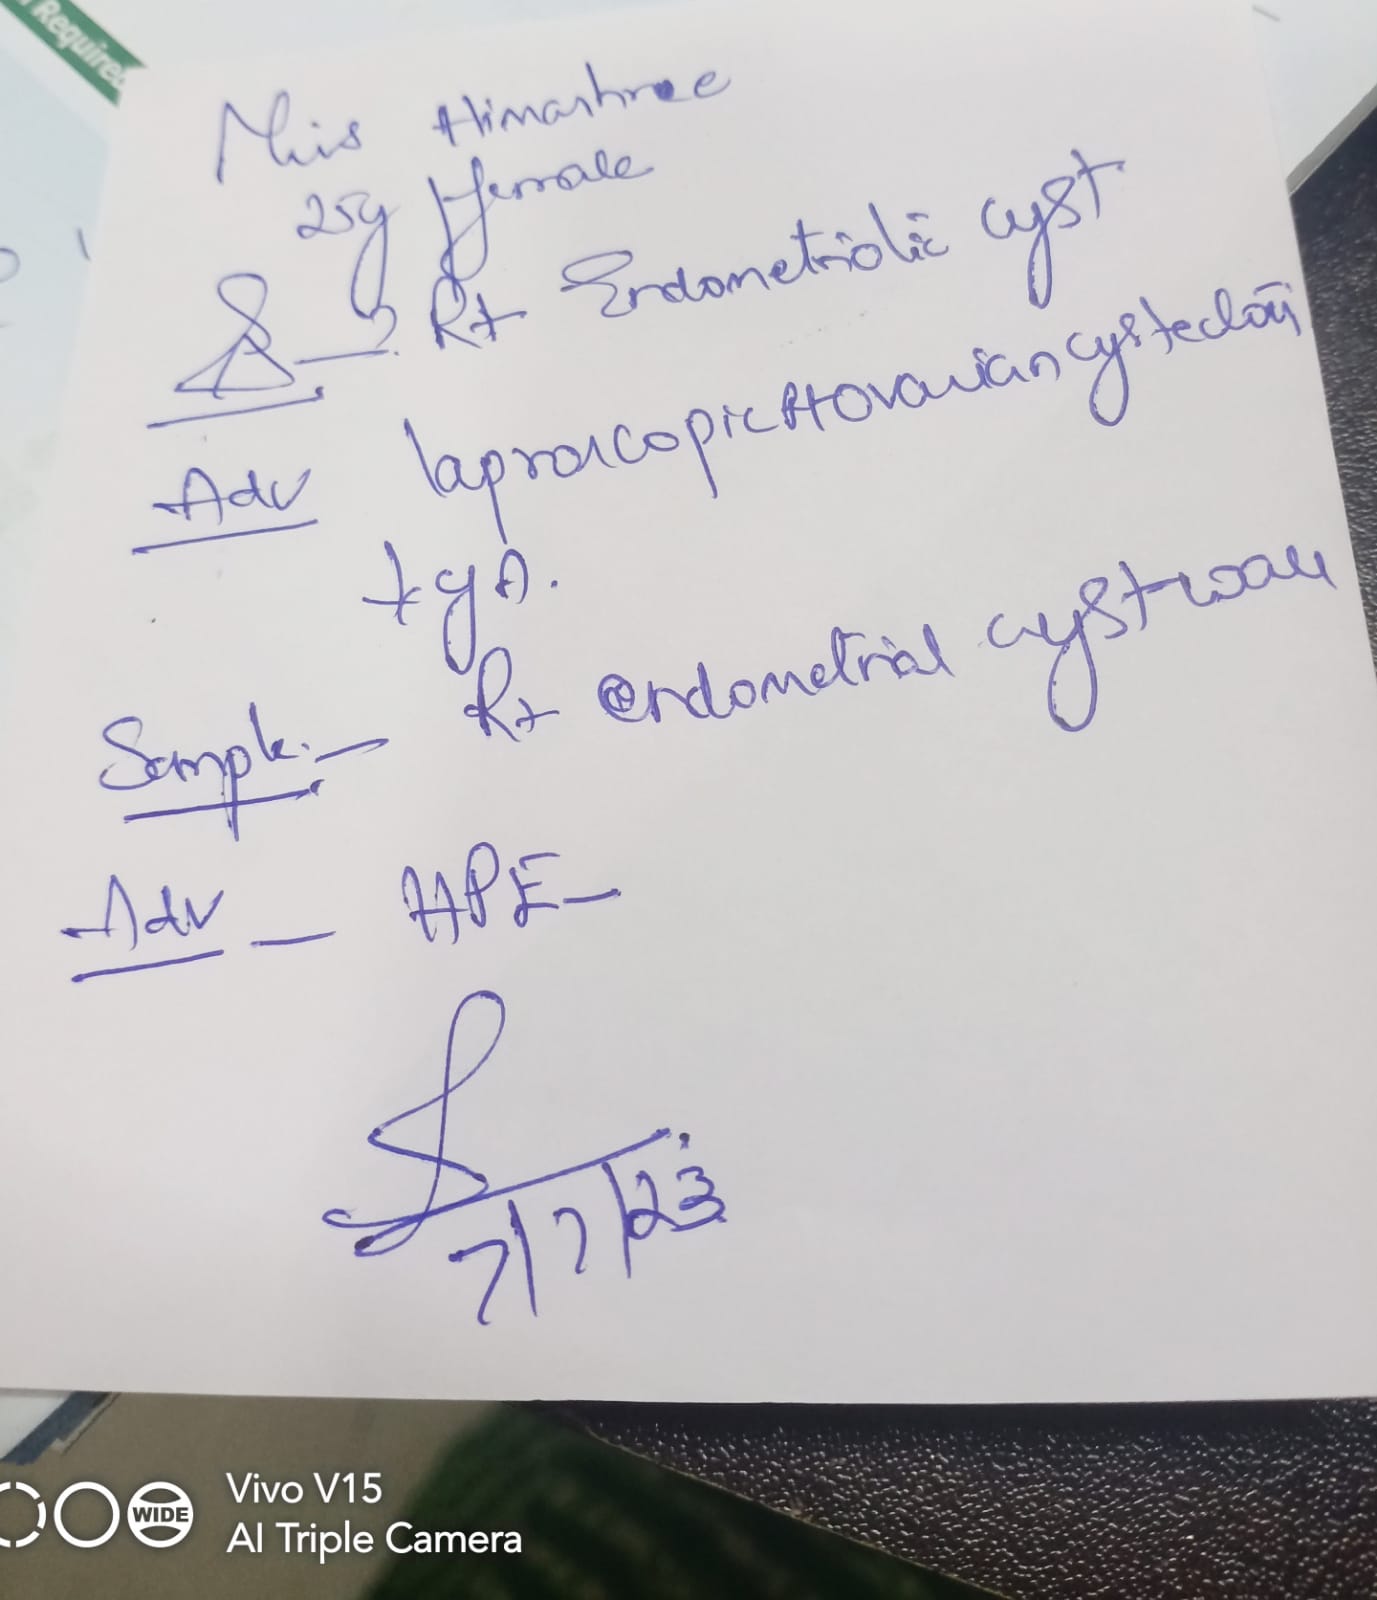 Required
Miss Himashree
25y / female
Δ - ? Rt Endometriotic cyst
Adv laproscopic Rt ovarian cystectomy
+ GA.
Sample. - Rt endometrial cyst wall
Adv - HPE -
7/7/23
WIDE
Vivo V15
AI Triple Camera